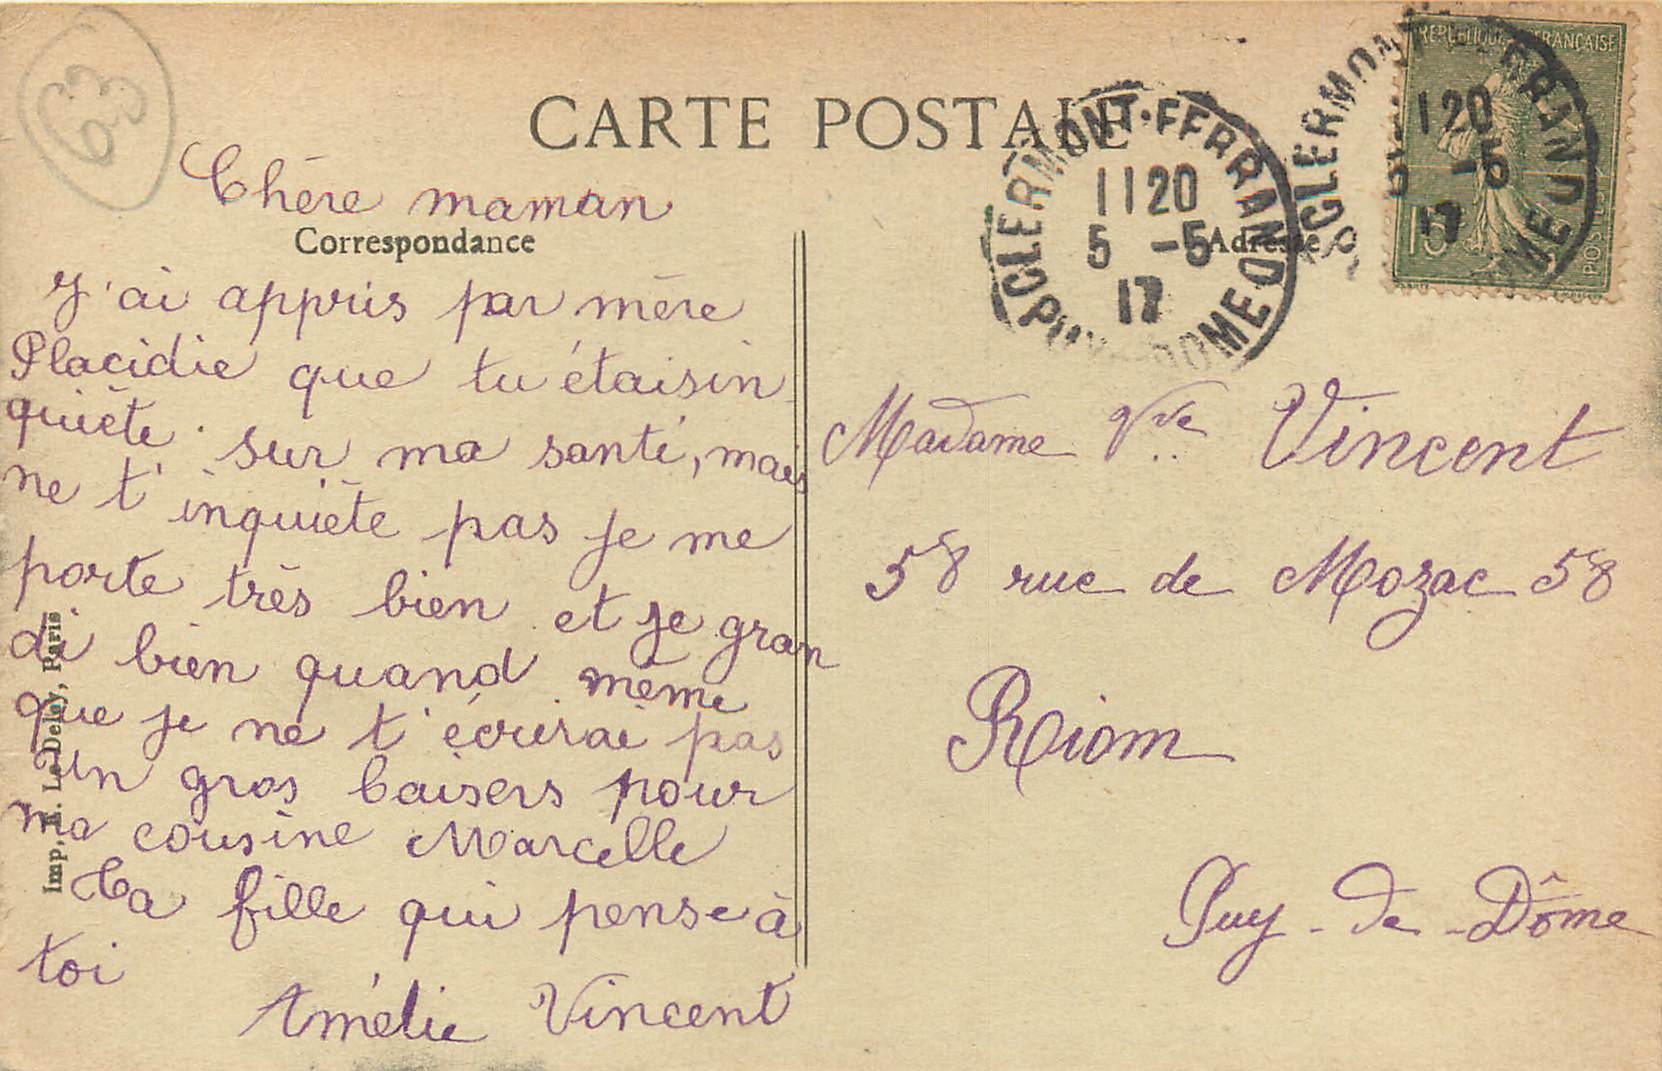 63
CARTE POSTALE
Chère maman
Correspondance
J'ai appris par mère
Placidie que tu étaisin
quiète sur ma santé, mais
ne t'inquiète pas je me
porte très bien et je gran
di bien quand même
que je ne t'écrirai pas
Un gros baisers pour
ma cousine Marcelle
Ta fille qui pense à
toi
Amélie Vincent
Imp. E. Le Deley, Paris
CLERMONT-FERRAND
1120
5 -5
17
PUY-DE-DOME
Adresse
CLERMONT-FERRAND
1120
5 -5
17
REPUBLIQUE FRANÇAISE
15
POSTES
Madame Vve Vincent
58 rue de Mozac 58
Riom
Puy-de-Dôme